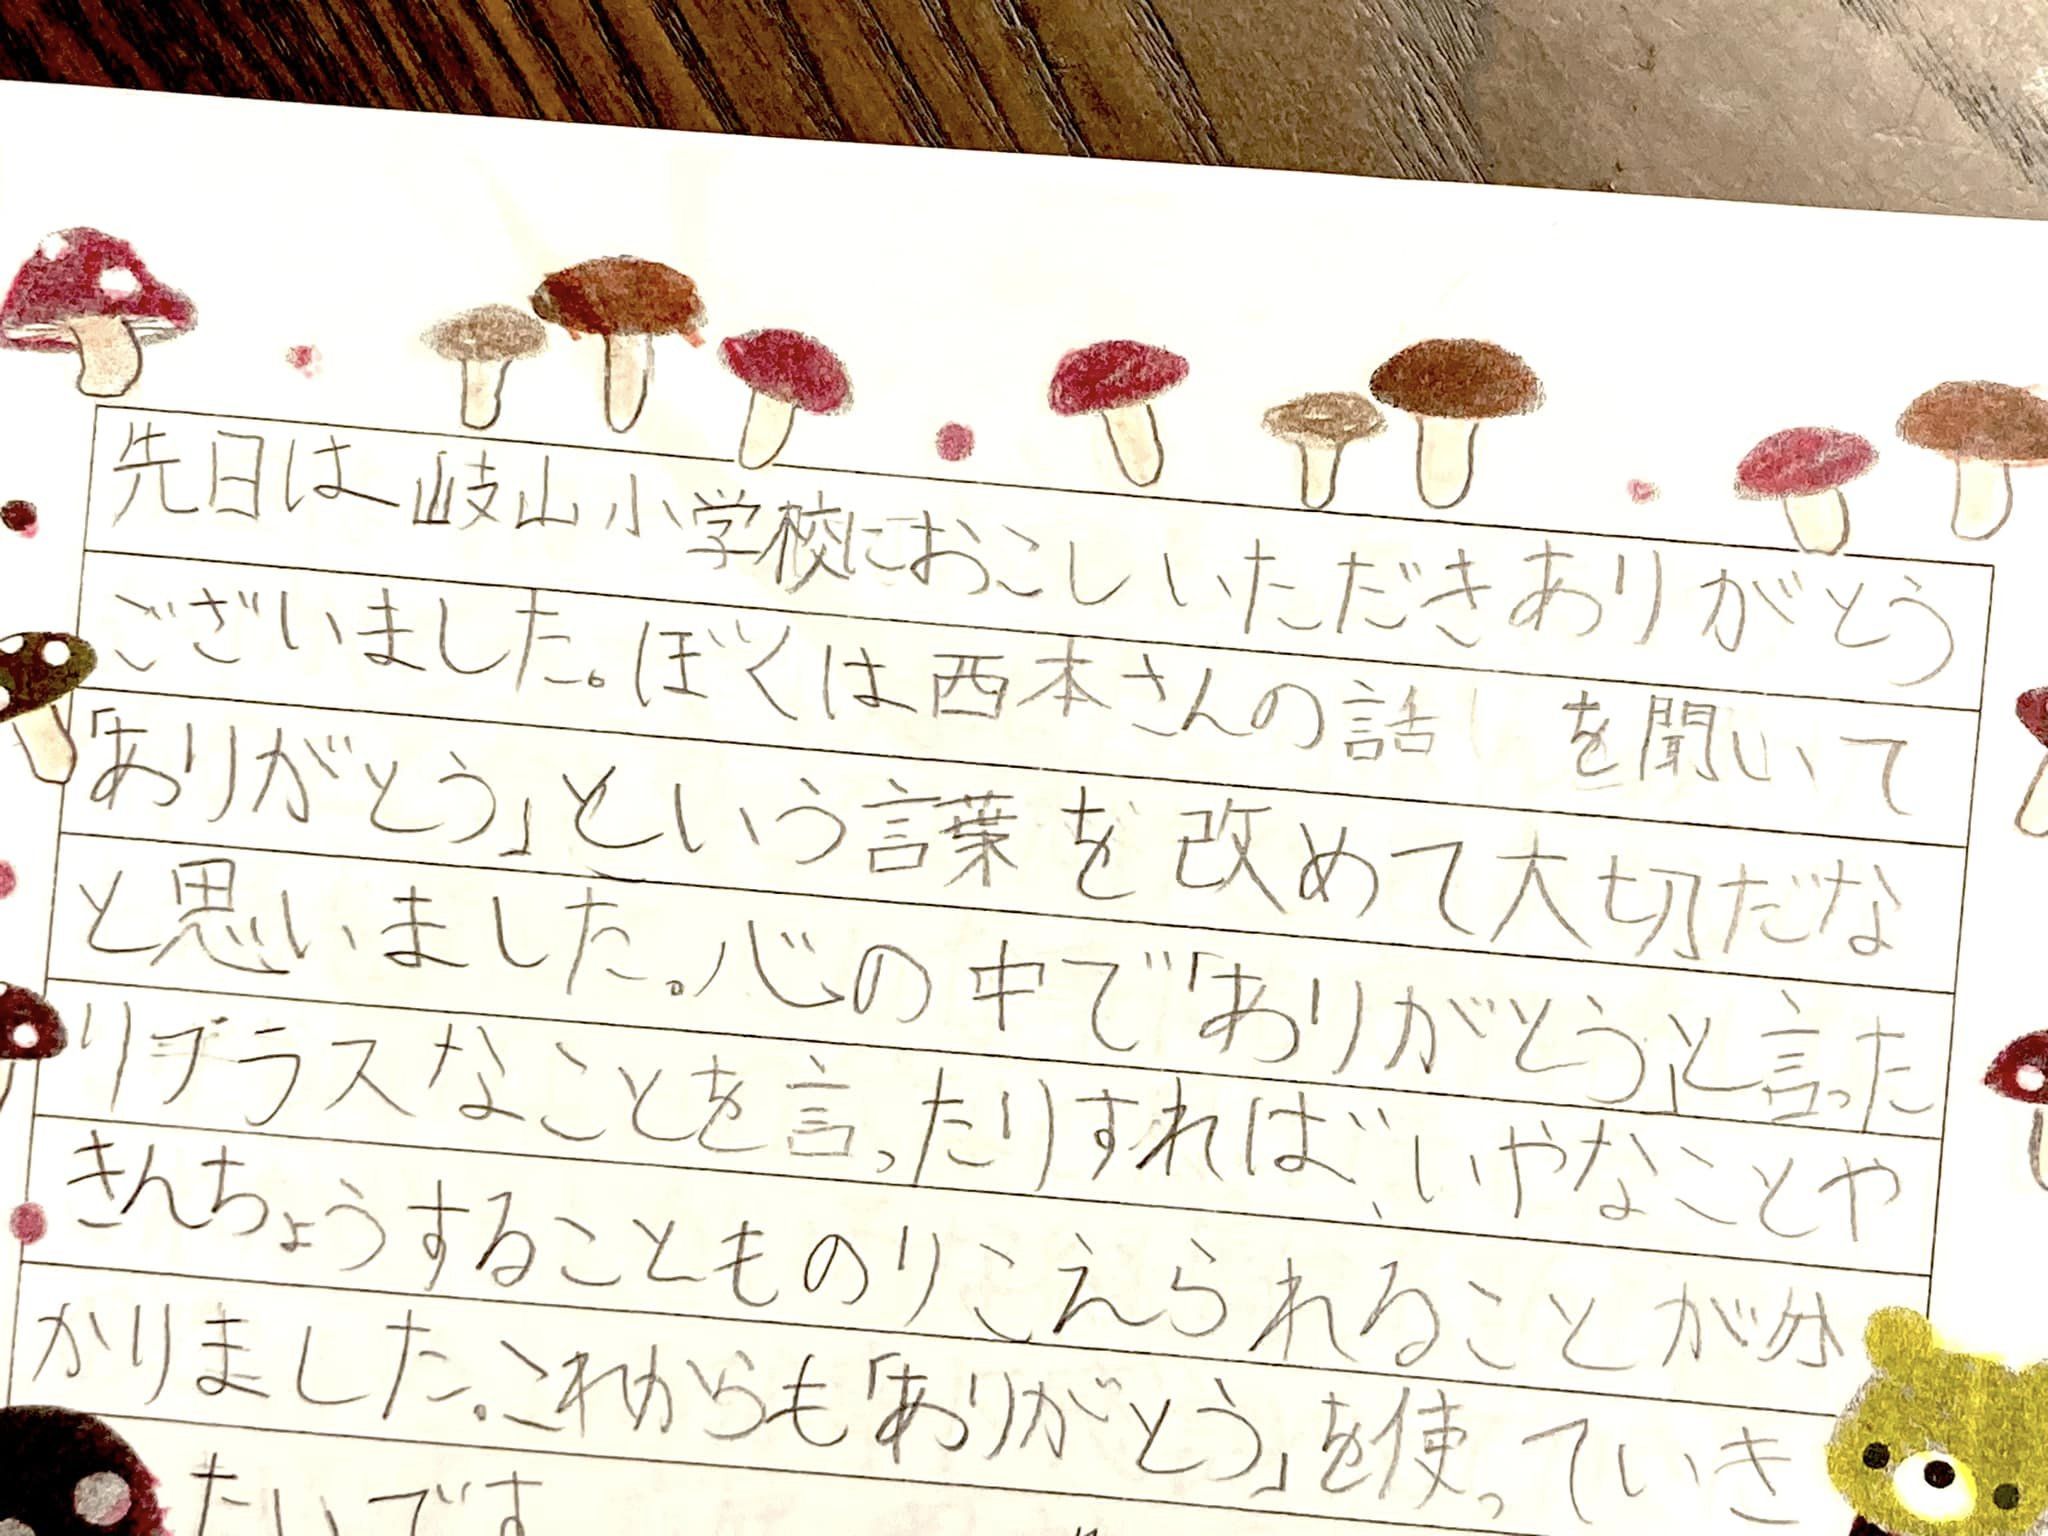 先日は岐山小学校におこしいただきありがとう
ございました。ぼくは西本さんの話を聞いて
「ありがとう」という言葉を改めて大切だな
と思いました。心の中で「ありがとう」と言った
りプラスなことを言ったりすれば、いやなことや
きんちょうすることものりこえられることが分
かりました。これからも「ありがとう」を使っていき
たいです